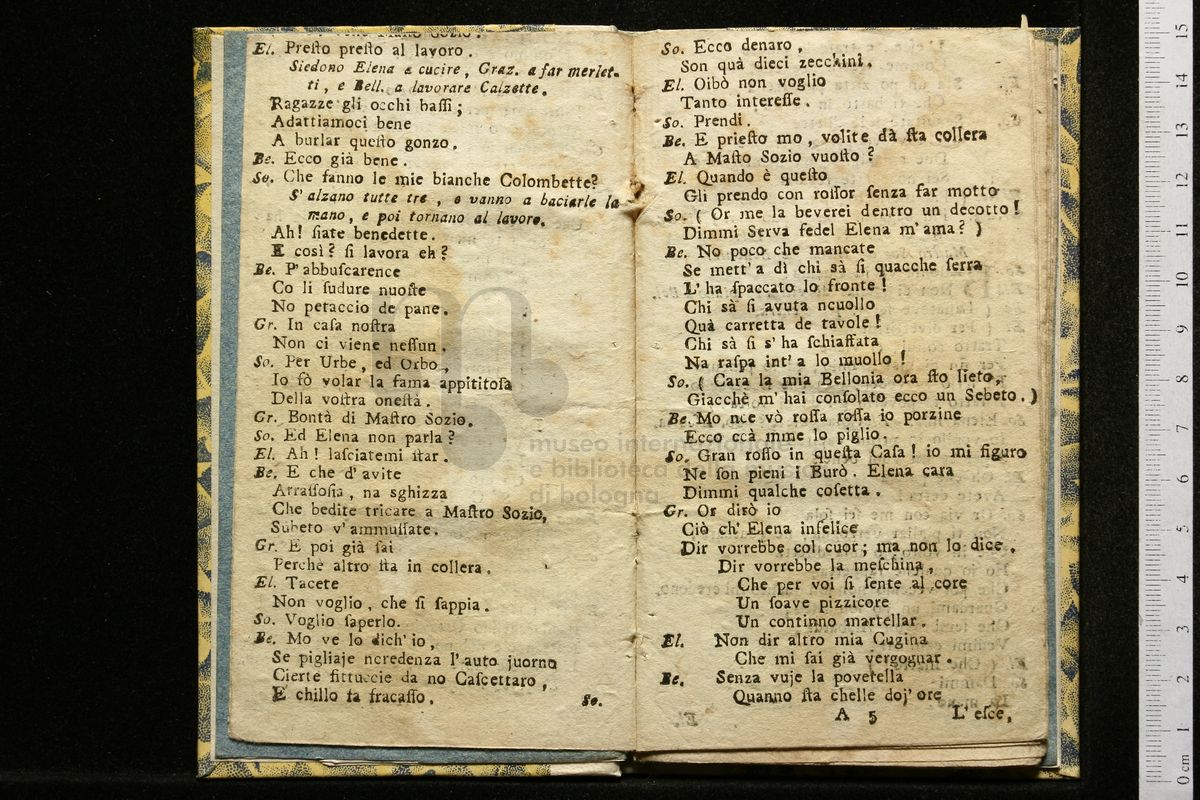 El. Preſto preſto al lavoro.
Siedono Elena a cucire, Graz. a far merlet-
ti, e Bell. a lavorare Calzette.
Ragazze gli occhi baſſi;
Adattiamoci bene
A burlar queſto gonzo.
Be. Ecco già bene.
So. Che fanno le mie bianche Colombette?
S'alzano tutte tre, e vanno a baciarle la
mano, e poi tornano al lavoro.
Ah! ſiate benedette.
E così? ſi lavora eh?
Be. P'abbuſcarence
Co li ſudure nuoſte
No petaccio de pane.
Gr. In caſa noſtra
Non ci viene neſſun.
So. Per Urbe, ed Orbo,
Io fò volar la fama appititoſa
Della voſtra oneſtà.
Gr. Bontà di Maſtro Sozio.
So. Ed Elena non parla?
El. Ah! laſciatemi ſtar.
Be. E che d'avite
Arraſſoſia, na sghizza
Che bedite tricare a Maſtro Sozio,
Subeto v'ammuſſate.
Gr. E poi già ſai
Perchè altro ſta in collera.
El. Tacete
Non voglio, che ſi ſappia.
So. Voglio ſaperlo.
Be. Mo ve lo dich'io,
Se pigliaje ncredenza l'auto juorno
Cierte fittuccie da no Caſcettaro,
E chillo fa fracaſſo.
So.
So. Ecco denaro,
Son quà dieci zecchini.
El. Oibò non voglio
Tanto intereſſe.
So. Prendi.
Be. E prieſto mo, volite dà ſta collera
A Maſto Sozio vuoſto?
El. Quando è queſto
Gli prendo con roſſor ſenza far motto
So. ( Or me la beverei dentro un decotto!
Dimmi Serva fedel Elena m'ama? )
Be. No poco che mancate
Se mett'a dì chi sà ſi quacche ſerra
L'ha ſpaccato lo fronte!
Chi sà ſi avuta ncuollo
Quà carretta de tavole!
Chi sà ſi s'ha ſchiaffata
Na raſpa int'a lo muollo!
So. ( Cara la mia Bellonia ora ſto lieto,
Giacchè m'hai conſolato ecco un Sebeto. )
Be. Mo nce vò roſſa roſſa io porzine
Ecco ccà mme lo piglio.
So. Gran roſſo in queſta Caſa! io mi figuro
Ne ſon pieni i Burò. Elena cara
Dimmi qualche coſetta.
Gr. Or dirò io
Ciò ch'Elena infelice
Dir vorrebbe col cuor; ma non lo dice.
Dir vorrebbe la meſchina,
Che per voi ſi ſente al core
Un ſoave pizzicore
Un continno martellar.
El. Non dir altro mia Cugina
Che mi fai già vergognar.
Be. Senza vuje la povetella
Quanno ſta chelle doj'ore
A 5 L'eſce,
museo internazionale
e biblioteca della musica
di bologna
0 cm 1 2 3 4 5 6 7 8 9 10 11 12 13 14 15